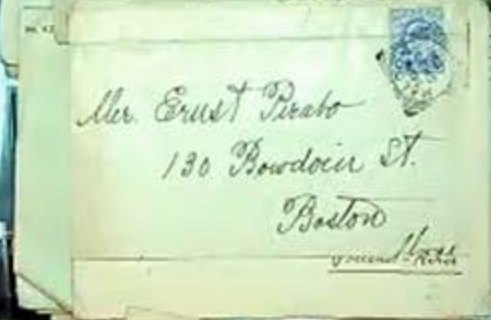 Mr. Ernst Perabo
130 Bowdoin St.
Boston
Mass